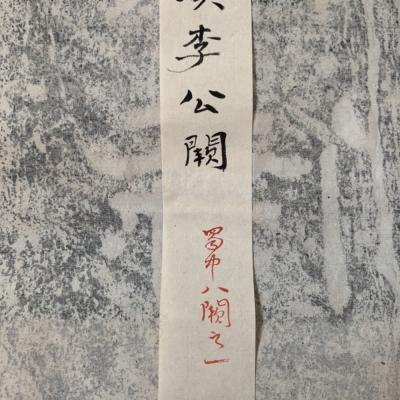 李公闕
蜀中八闕之一